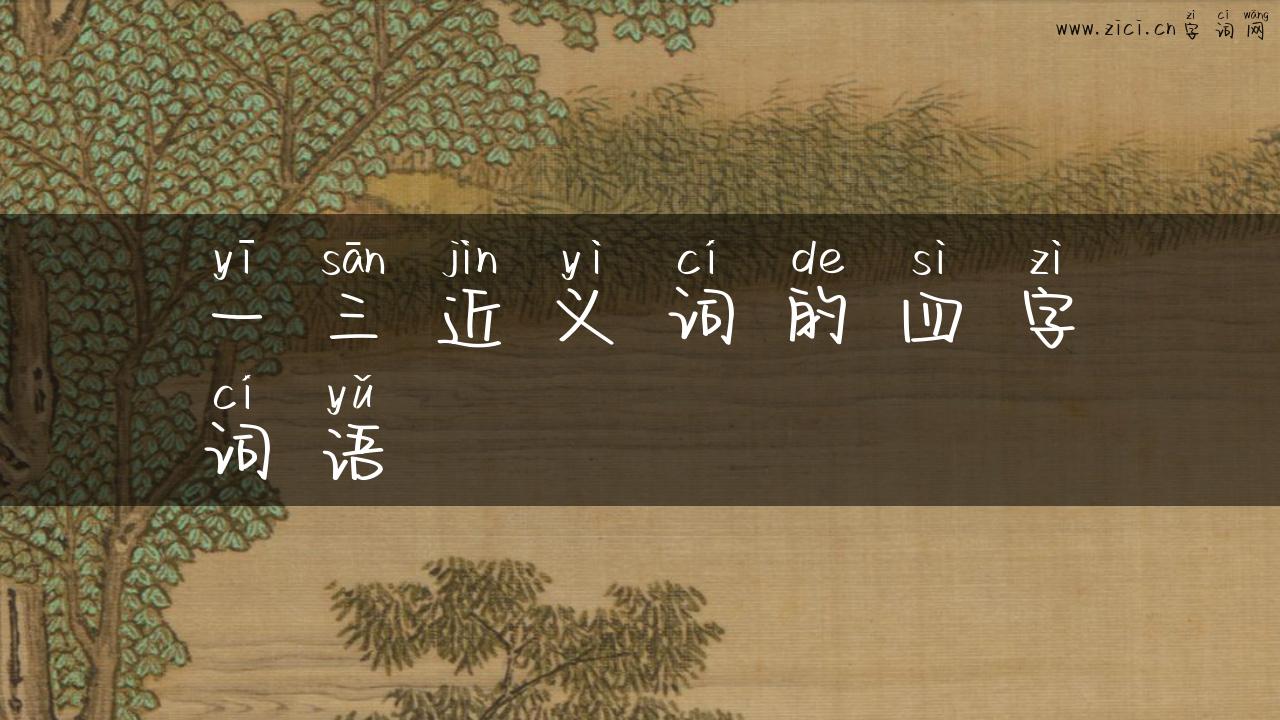 zì cí wǎng
www.zici.cn 字词网
yī sān jìn yì cí de sì zì
一三近义词的四字
cí yǔ
词语